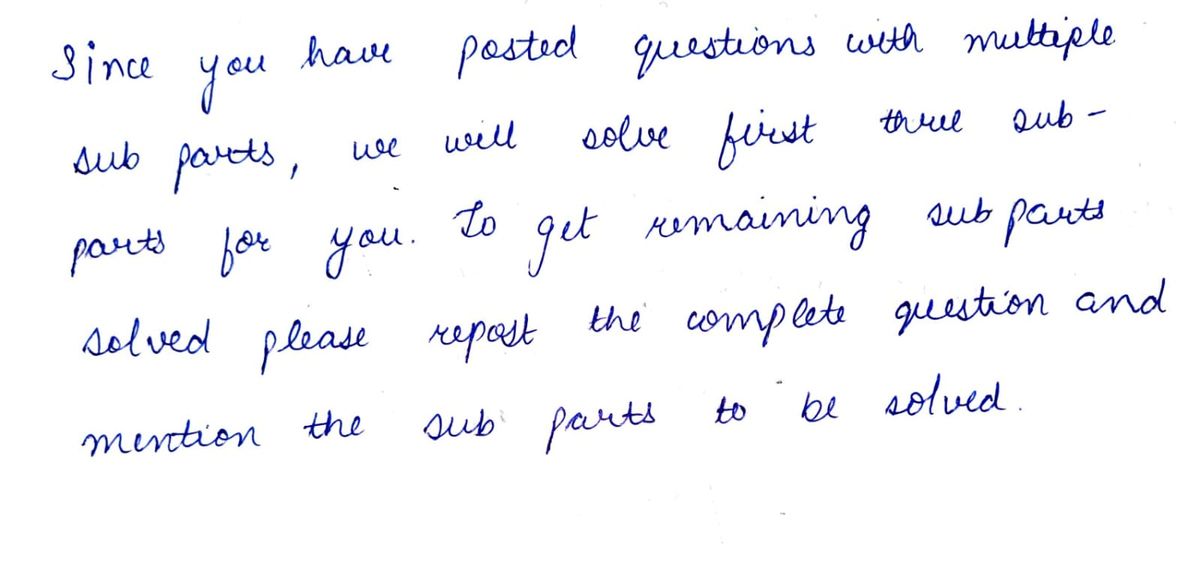 Since you have posted questions with multiple
sub parts, we will solve first three sub-
parts for you. To get remaining sub parts
solved please repost the complete question and
mention the sub parts to be solved.